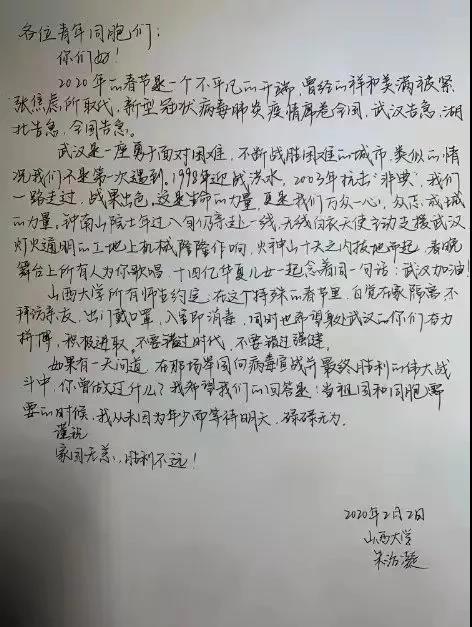 各位青年同胞们：
你们好！
2020年的春节是一个不平凡的开端，曾经的祥和美满被紧
张焦虑所取代，新型冠状病毒肺炎疫情席卷全国，武汉告急，湖
北告急，全国告急。
武汉是一座勇于面对困难，不断战胜困难的城市，类似的情
况我们不是第一次遇到。1998年迎战洪水，2003年抗击“非典”，我们
一路走过，战果出色，这是生命的力量，更是我们万众一心，众志成城
的力量；钟南山院士年过八旬仍奔赴一线，无数白衣天使主动支援武汉
灯火通明的土地上机械隆隆作响，火神山十天之内拔地而起，春晚
舞台上所有人为你歌唱，十四亿华夏儿女一起念着同一句话：武汉加油！
山西大学所有师生约定，在这个特殊的春节里，自觉在家隔离不
拜访亲友，出门戴口罩，入室即消毒，同时也希望身处武汉的你们奋力
拼搏，积极进取。不要错过时代，不要错过强健。
如果有一天问道，在那场举国向病毒宣战并最终胜利的伟大战
斗中，你曾做过什么？我希望我们的回答是：当祖国和同胞需
要的时候，我从未因为年少而等待明天，碌碌无为。
谨祝
家国无恙，胜利不远！
2020年2月2日
山西大学
朱治凝